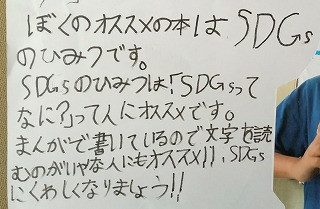 ぼくのオススメの本はSDGs
のひみつです。
SDGsのひみつは「SDGsって
なに?」って人にオススメです。
まんがで書いているので文字を読
むのがいやな人にもオススメ!!、SDGs
にくわしくなりましょう!!